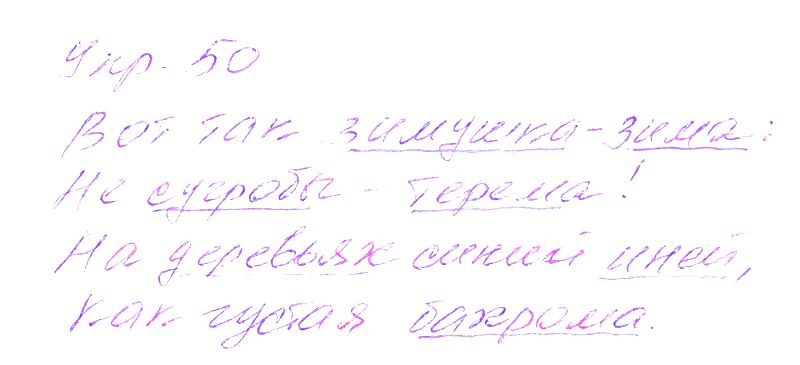 Упр. 50
Вот так зимушка-зима:
Не сугробы - терема!
На деревьях синий иней,
как густая бахрома.